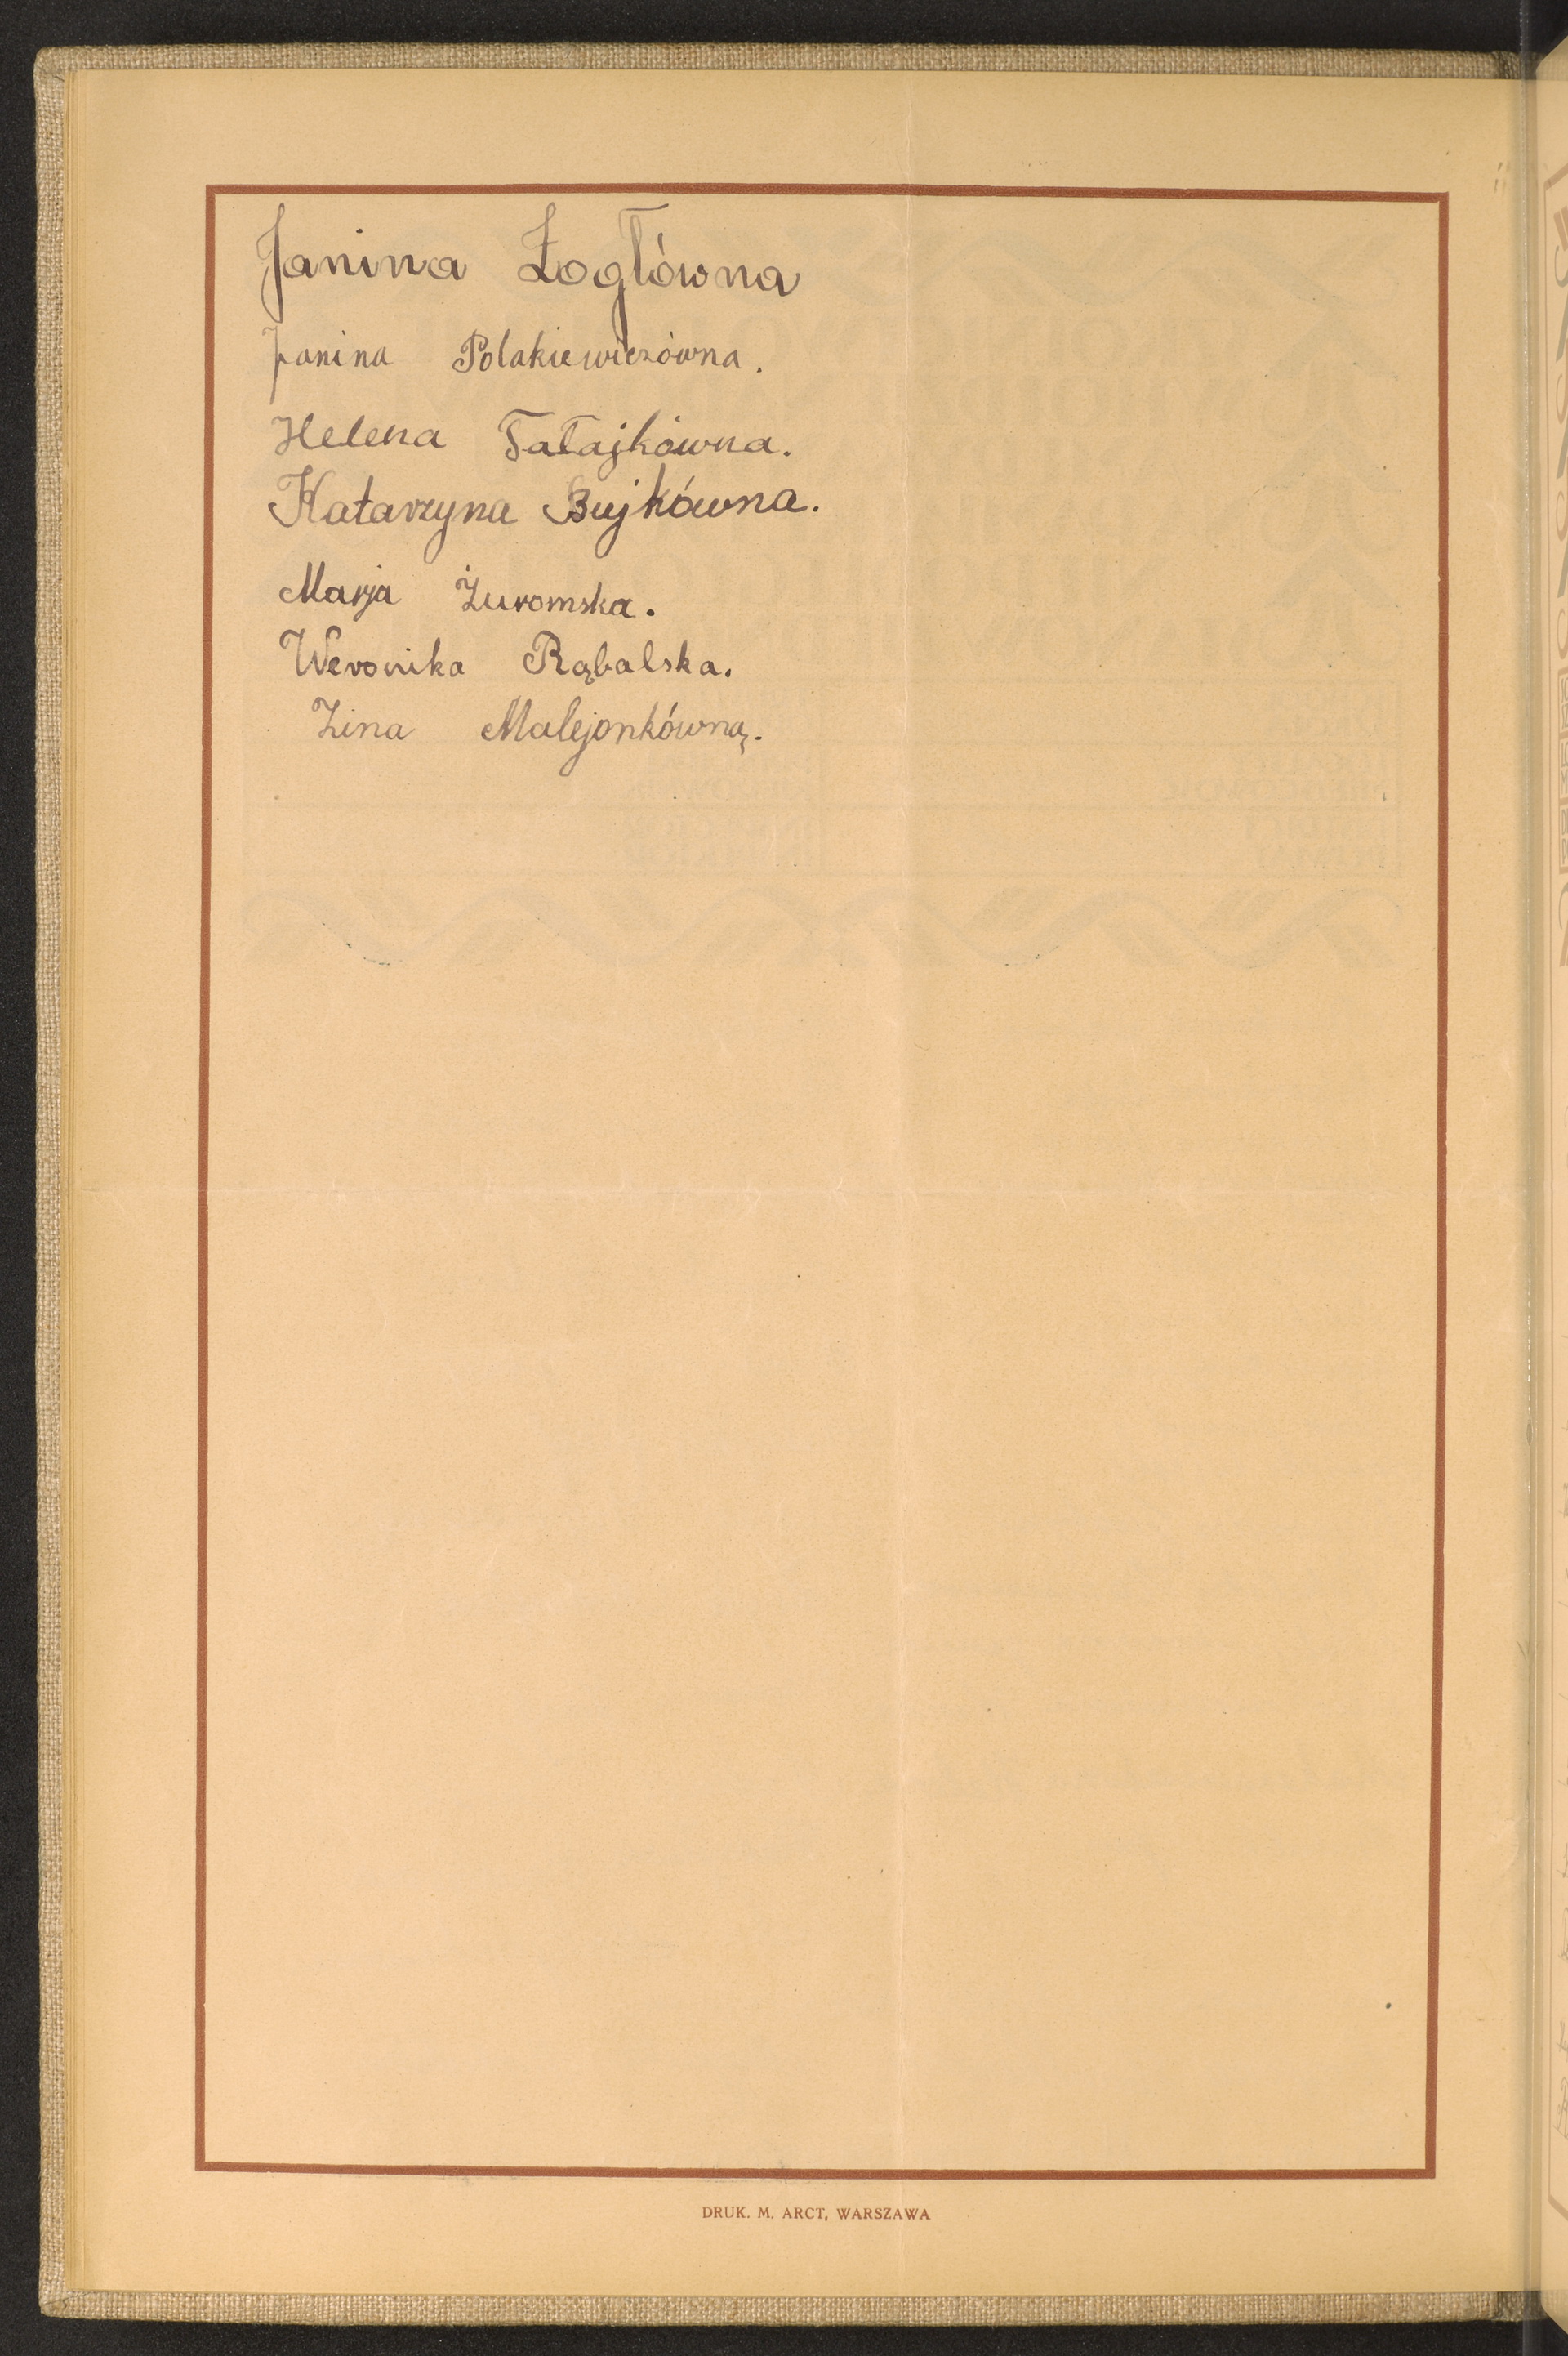 Janina Żogłówna
Janina Polakiewiczówna.
Helena Tałajkówna.
Katarzyna Bujkówna.
Marja Żuromska.
Weronika Rąbalska.
Zina Malejonkówną.
DRUK. M. ARCT, WARSZAWA